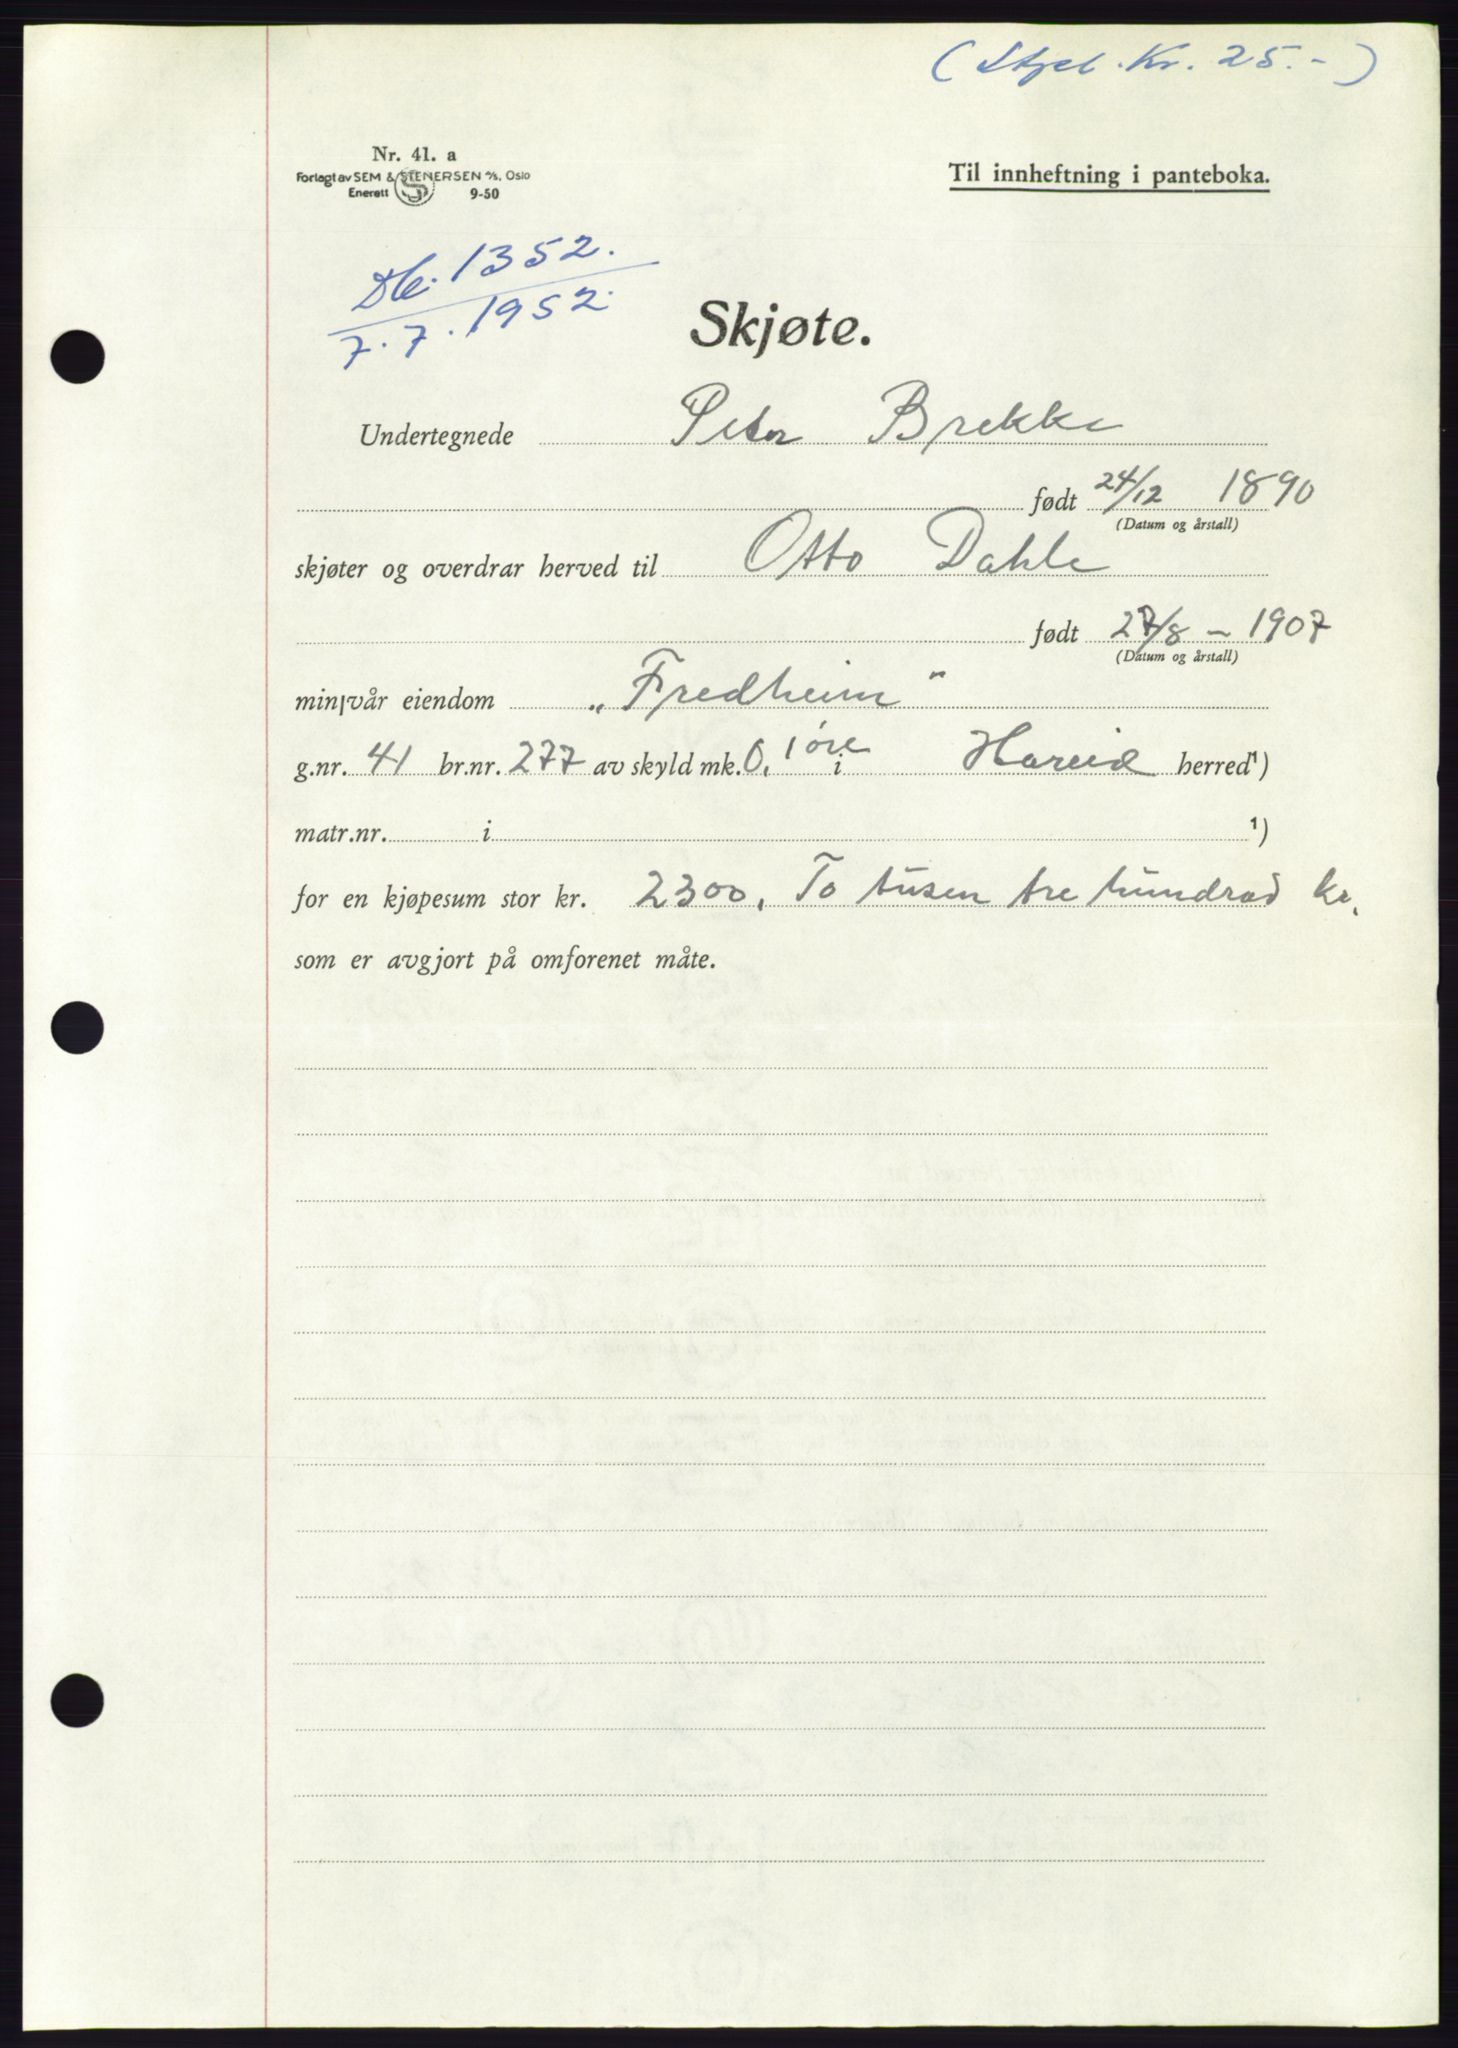 ( Stpel. Kr. 25.- )
Nr. 41. a
Forlagt av SEM & STENERSEN A/S, Oslo
Enerett 9-50
Til innheftning i panteboka.
Db. 1352.
7.7.1952.
Skjøte.
Undertegnede Peter Brekke
født 24/12 1890
(Datum og årstall)
skjøter og overdrar herved til Otto Dahle
født 27/8 - 1907
(Datum og årstall)
min/vår eiendom „Fredheim"
g.nr. 41 br.nr. 277 av skyld mk. 0,1 øre i Hareid herred¹)
matr.nr. i ¹)
for en kjøpesum stor kr. 2300, To tusen tre hundrad kr.
som er avgjort på omforenet måte.